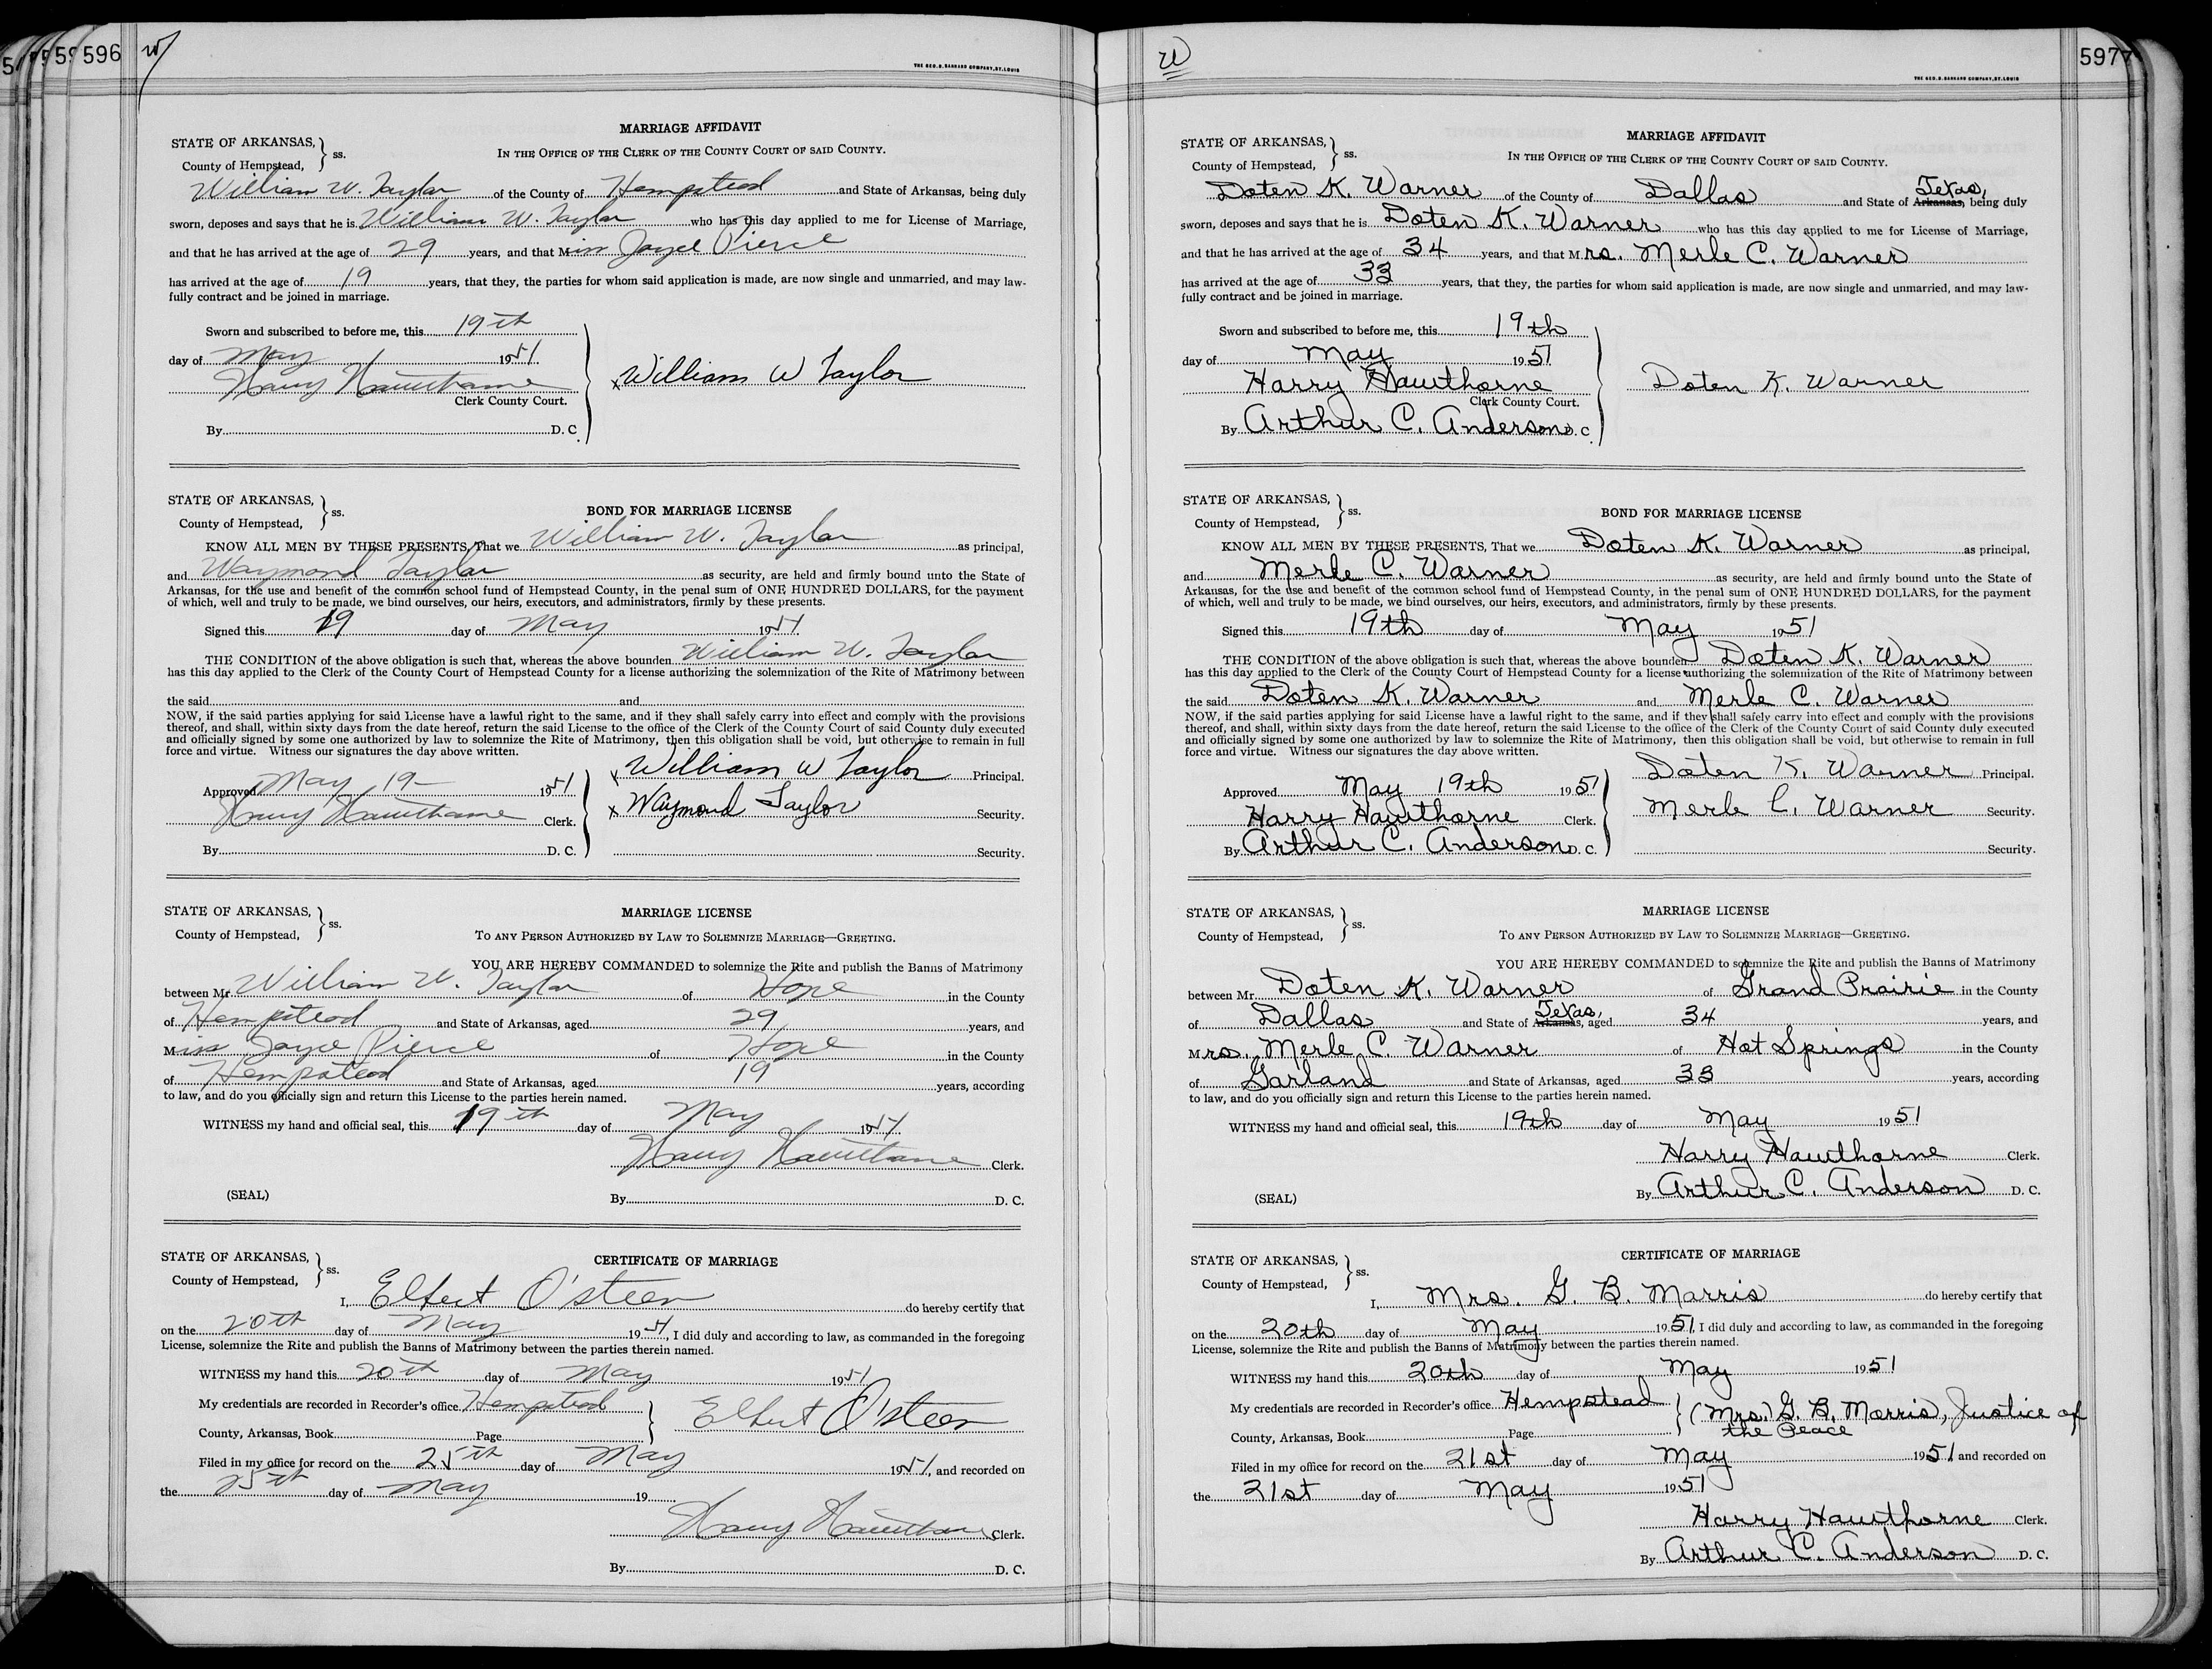 596
W
THE GEO. D. BARNARD COMPANY, ST. LOUIS
MARRIAGE AFFIDAVIT
STATE OF ARKANSAS,
County of Hempstead, } ss.
IN THE OFFICE OF THE CLERK OF THE COUNTY COURT OF SAID COUNTY.
William W. Taylor of the County of Hempstead and State of Arkansas, being duly
sworn, deposes and says that he is William W. Taylor who has this day applied to me for License of Marriage,
and that he has arrived at the age of 29 years, and that Miss Joyce Pierce
has arrived at the age of 19 years, that they, the parties for whom said application is made, are now single and unmarried, and may law-
fully contract and be joined in marriage.
Sworn and subscribed to before me, this 19th
day of May 1951
Harry Hawthorne
Clerk County Court.
x William W Taylor
By D. C.
STATE OF ARKANSAS,
County of Hempstead, } ss.
BOND FOR MARRIAGE LICENSE
KNOW ALL MEN BY THESE PRESENTS, That we William W. Taylor as principal,
and Waymond Taylor as security, are held and firmly bound unto the State of
Arkansas, for the use and benefit of the common school fund of Hempstead County, in the penal sum of ONE HUNDRED DOLLARS, for the payment
of which, well and truly to be made, we bind ourselves, our heirs, executors, and administrators, firmly by these presents.
Signed this 19 day of May 1951
THE CONDITION of the above obligation is such that, whereas the above bounden William W. Taylor
has this day applied to the Clerk of the County Court of Hempstead County for a license authorizing the solemnization of the Rite of Matrimony between
the said and
NOW, if the said parties applying for said License have a lawful right to the same, and if they shall safely carry into effect and comply with the provisions
thereof, and shall, within sixty days from the date hereof, return the said License to the office of the Clerk of the County Court of said County duly executed
and officially signed by some one authorized by law to solemnize the Rite of Matrimony, then this obligation shall be void, but otherwise to remain in full
force and virtue. Witness our signatures the day above written.
Approved May 19- 1951
x William W Taylor Principal.
Harry Hawthorne Clerk.
x Waymond Taylor Security.
By D. C.
Security.
STATE OF ARKANSAS,
County of Hempstead, } ss.
MARRIAGE LICENSE
TO ANY PERSON AUTHORIZED BY LAW TO SOLEMNIZE MARRIAGE—GREETING.
YOU ARE HEREBY COMMANDED to solemnize the Rite and publish the Banns of Matrimony
between Mr. William W. Taylor of Hope in the County
of Hempstead and State of Arkansas, aged 29 years, and
Miss Joyce Pierce of Hope in the County
of Hempstead and State of Arkansas, aged 19 years, according
to law, and do you officially sign and return this License to the parties herein named.
WITNESS my hand and official seal, this 19th day of May 1951
Harry Hawthorne Clerk.
(SEAL)
By D. C.
STATE OF ARKANSAS,
County of Hempstead, } ss.
CERTIFICATE OF MARRIAGE
I, Elbert O'steen do hereby certify that
on the 20th day of May 1951, I did duly and according to law, as commanded in the foregoing
License, solemnize the Rite and publish the Banns of Matrimony between the parties therein named.
WITNESS my hand this 20th day of May 1951
My credentials are recorded in Recorder's office Hempstead
County, Arkansas, Book Page
Elbert O'steen
Filed in my office for record on the 25th day of May 1951, and recorded on
the 25th day of May 19
Harry Hawthorne Clerk.
By D. C.
597
W
THE GEO. D. BARNARD COMPANY, ST. LOUIS
MARRIAGE AFFIDAVIT
STATE OF ARKANSAS,
County of Hempstead, } ss.
IN THE OFFICE OF THE CLERK OF THE COUNTY COURT OF SAID COUNTY.
Doten K. Warner of the County of Dallas and State of Arkansas, Texas, being duly
sworn, deposes and says that he is Doten K. Warner who has this day applied to me for License of Marriage,
and that he has arrived at the age of 34 years, and that Mrs. Merle C. Warner
has arrived at the age of 33 years, that they, the parties for whom said application is made, are now single and unmarried, and may law-
fully contract and be joined in marriage.
Sworn and subscribed to before me, this 19th
day of May 1951
Harry Hawthorne
Clerk County Court.
Doten K. Warner
By Arthur C. Anderson D. C.
STATE OF ARKANSAS,
County of Hempstead, } ss.
BOND FOR MARRIAGE LICENSE
KNOW ALL MEN BY THESE PRESENTS, That we Doten K. Warner as principal,
and Merle C. Warner as security, are held and firmly bound unto the State of
Arkansas, for the use and benefit of the common school fund of Hempstead County, in the penal sum of ONE HUNDRED DOLLARS, for the payment
of which, well and truly to be made, we bind ourselves, our heirs, executors, and administrators, firmly by these presents.
Signed this 19th day of May 1951
THE CONDITION of the above obligation is such that, whereas the above bounden Doten K. Warner
has this day applied to the Clerk of the County Court of Hempstead County for a license authorizing the solemnization of the Rite of Matrimony between
the said Doten K. Warner and Merle C. Warner
NOW, if the said parties applying for said License have a lawful right to the same, and if they shall safely carry into effect and comply with the provisions
thereof, and shall, within sixty days from the date hereof, return the said License to the office of the Clerk of the County Court of said County duly executed
and officially signed by some one authorized by law to solemnize the Rite of Matrimony, then this obligation shall be void, but otherwise to remain in full
force and virtue. Witness our signatures the day above written.
Doten K. Warner Principal.
Approved May 19th 1951
Merle C. Warner Security.
Harry Hawthorne Clerk.
By Arthur C. Anderson D. C.
Security.
STATE OF ARKANSAS,
County of Hempstead, } ss.
MARRIAGE LICENSE
TO ANY PERSON AUTHORIZED BY LAW TO SOLEMNIZE MARRIAGE—GREETING.
YOU ARE HEREBY COMMANDED to solemnize the Rite and publish the Banns of Matrimony
between Mr. Doten K. Warner of Grand Prairie in the County
of Dallas and State of Arkansas, Texas, aged 34 years, and
Mrs. Merle C. Warner of Hot Springs in the County
of Garland and State of Arkansas, aged 33 years, according
to law, and do you officially sign and return this License to the parties herein named.
WITNESS my hand and official seal, this 19th day of May 1951
Harry Hawthorne Clerk.
(SEAL)
By Arthur C. Anderson D. C.
STATE OF ARKANSAS,
County of Hempstead, } ss.
CERTIFICATE OF MARRIAGE
I, Mrs. G. B. Morris do hereby certify that
on the 20th day of May 1951, I did duly and according to law, as commanded in the foregoing
License, solemnize the Rite and publish the Banns of Matrimony between the parties therein named.
WITNESS my hand this 20th day of May 1951
My credentials are recorded in Recorder's office Hempstead
(Mrs.) G. B. Morris, Justice of
the Peace
County, Arkansas, Book Page
Filed in my office for record on the 21st day of May 1951 and recorded on
the 21st day of May 1951
Harry Hawthorne Clerk.
By Arthur C. Anderson D. C.